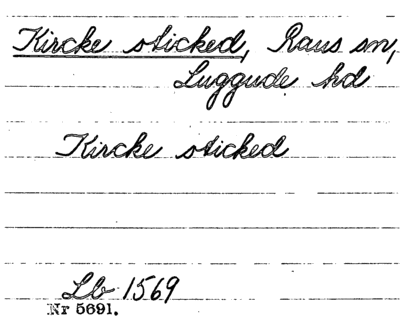 Kircke sticked, Raus sn,
Luggude hd
Kircke sticked
Lb 1569
Nr 5691.